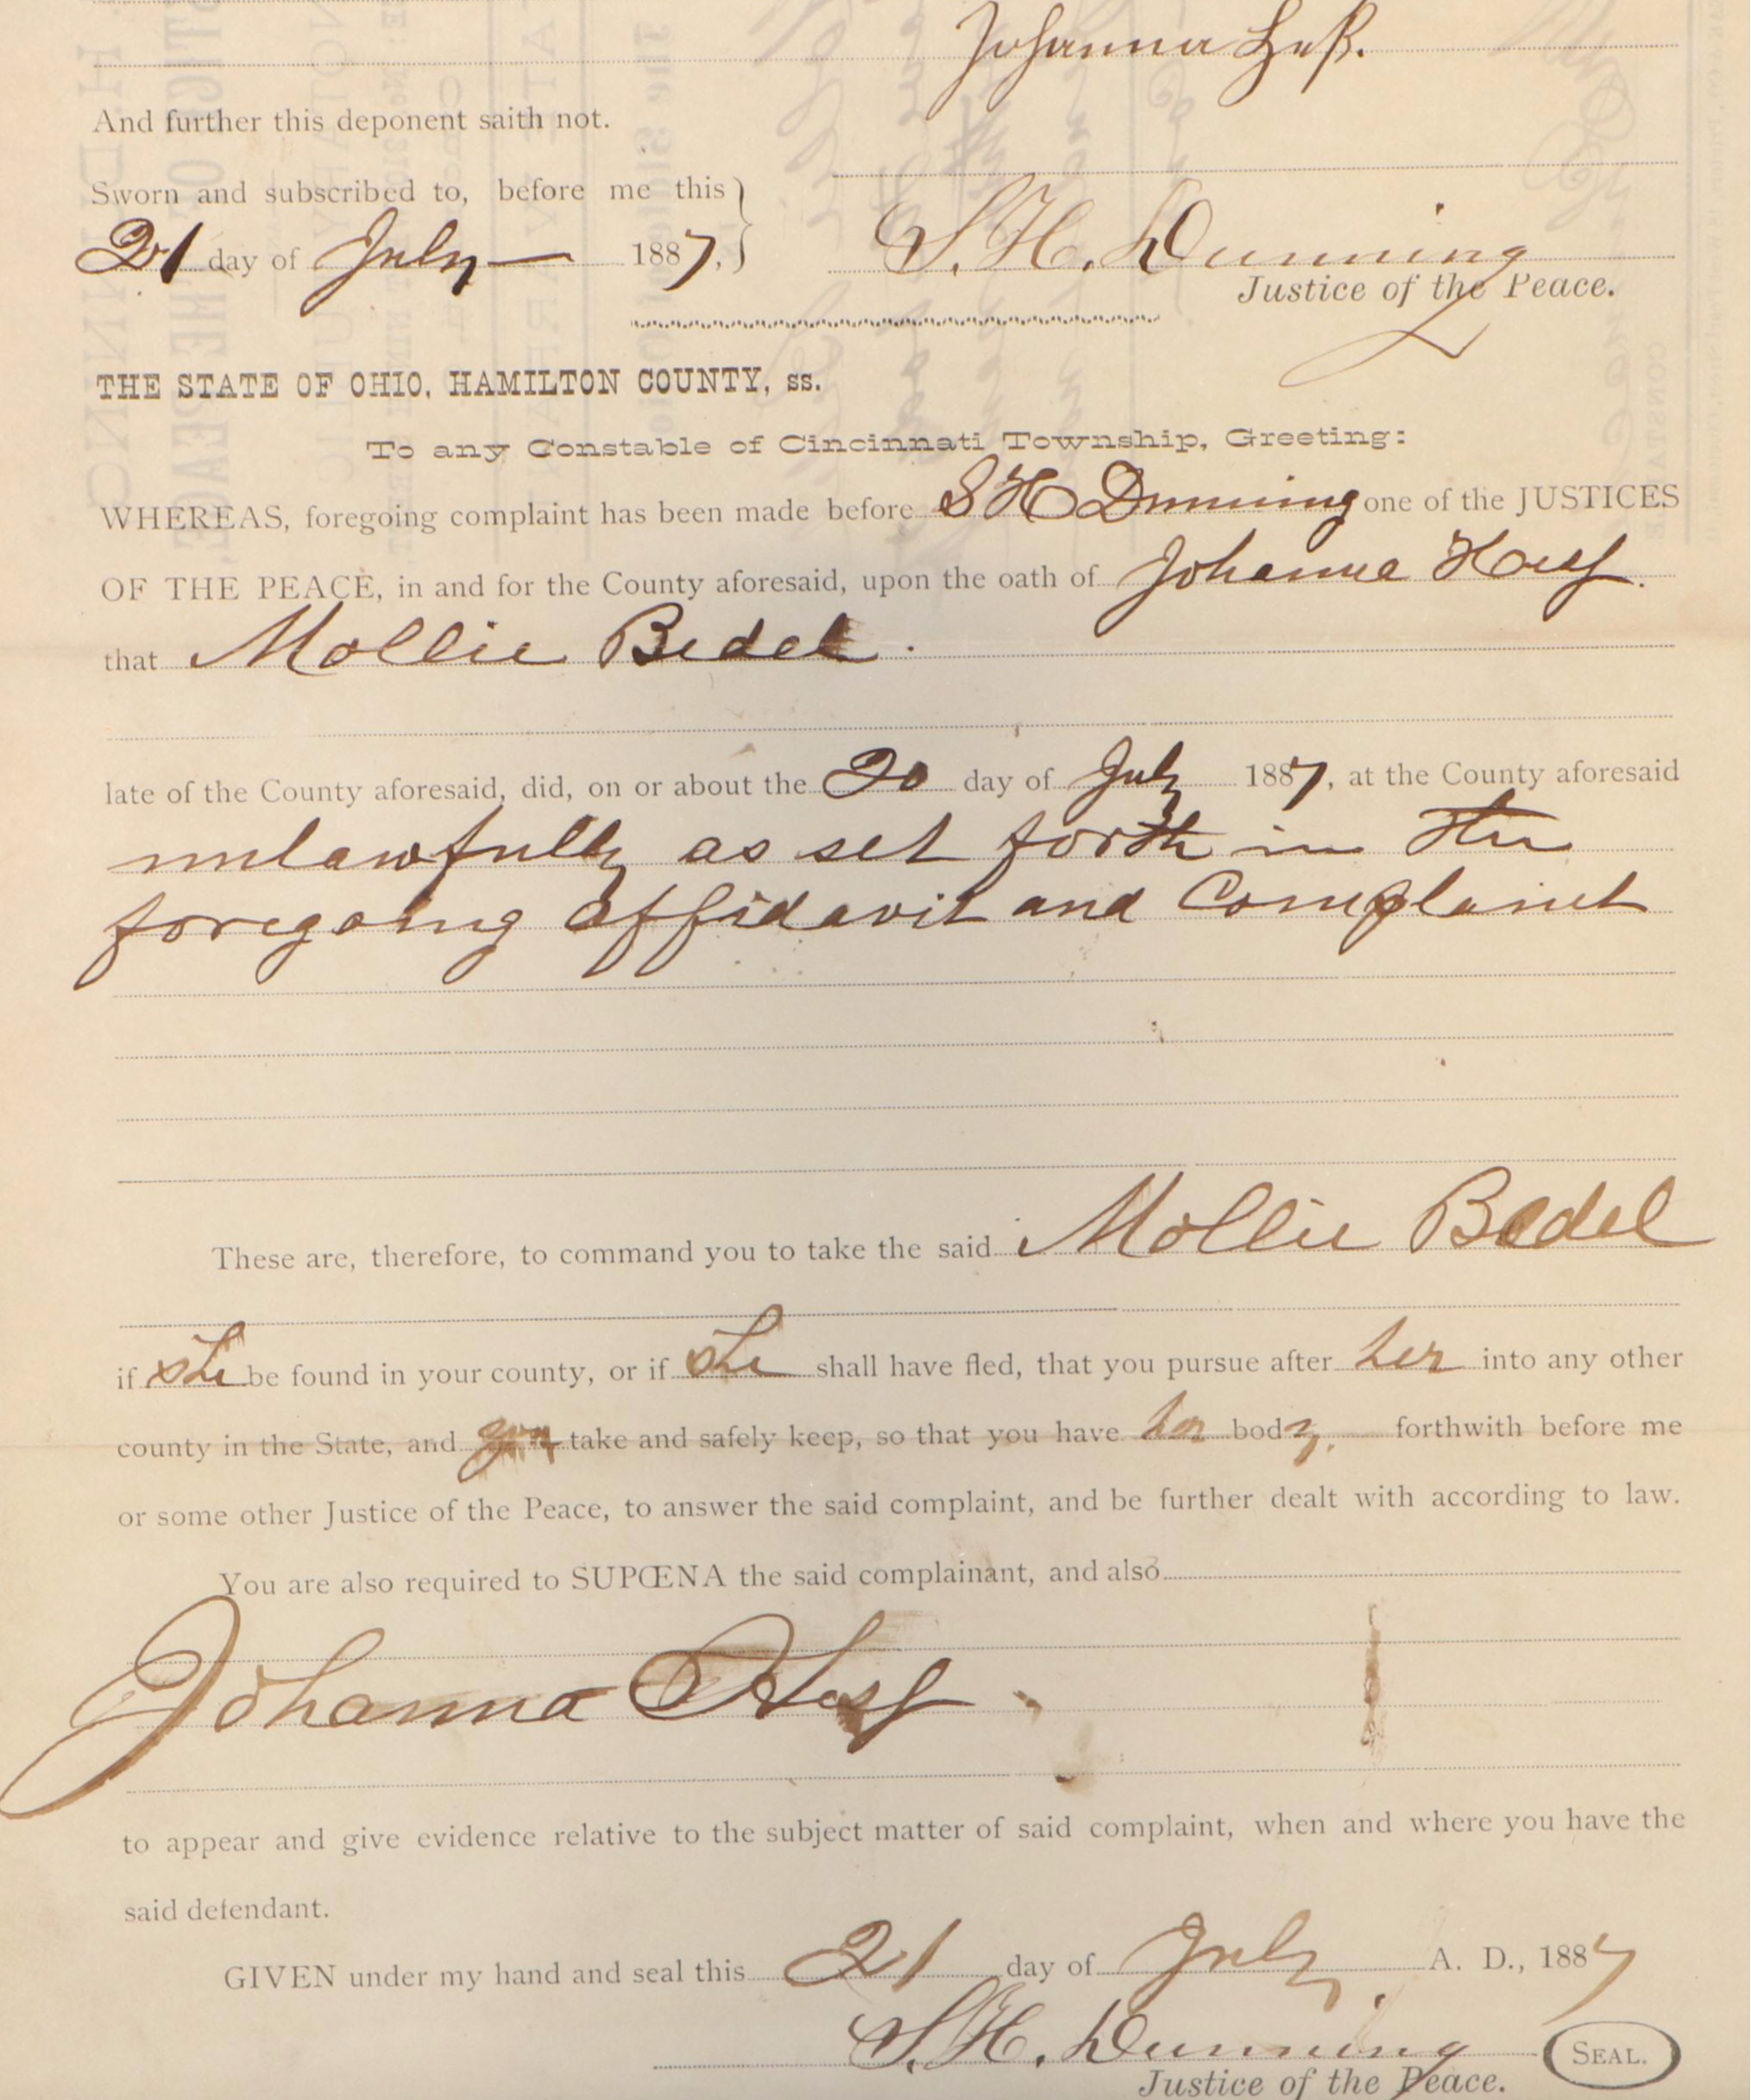 Johanna Heß.
And further this deponent saith not.
Sworn and subscribed to, before me this
21 day of July 1887, S. H. Dunning
Justice of the Peace.
THE STATE OF OHIO, HAMILTON COUNTY, ss.
To any Constable of Cincinnati Township, Greeting:
WHEREAS, foregoing complaint has been made before S H Dunning one of the JUSTICES
OF THE PEACE, in and for the County aforesaid, upon the oath of Johanna
that Mollie Bedel.
late of the County aforesaid, did, on or about the 20 day of July 1887, at the County aforesaid
unlawfully as set forth in the
foregoing affidavit and Complaint
These are, therefore, to command you to take the said Mollie Bedel
if she be found in your county, or if she shall have fled, that you pursue after her into any other
county in the State, and take and safely keep, so that you have her body, forthwith before me
or some other Justice of the Peace, to answer the said complaint, and be further dealt with according to law.
You are also required to SUPŒNA the said complainant, and also
Johanna Hess
to appear and give evidence relative to the subject matter of said complaint, when and where you have the
said defendant.
GIVEN under my hand and seal this 21 day of July A. D., 1887
S. H. Dunning SEAL.
Justice of the Peace.